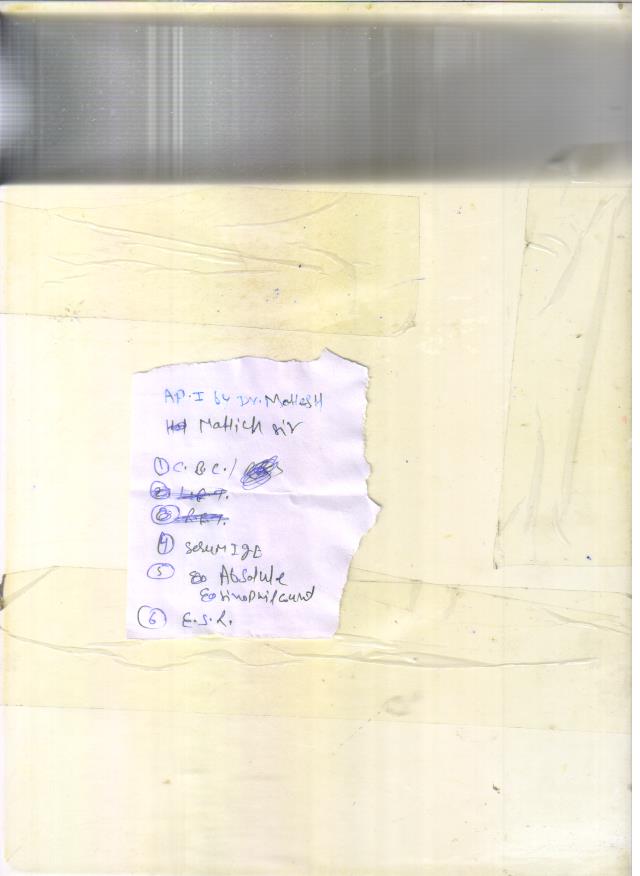 AP.I by Dr. Mahesh
Mallick sir
① C.B.C./
②
③
④ serum IgE
⑤ Absolute
Eosinophil count
⑥ E.S.R.